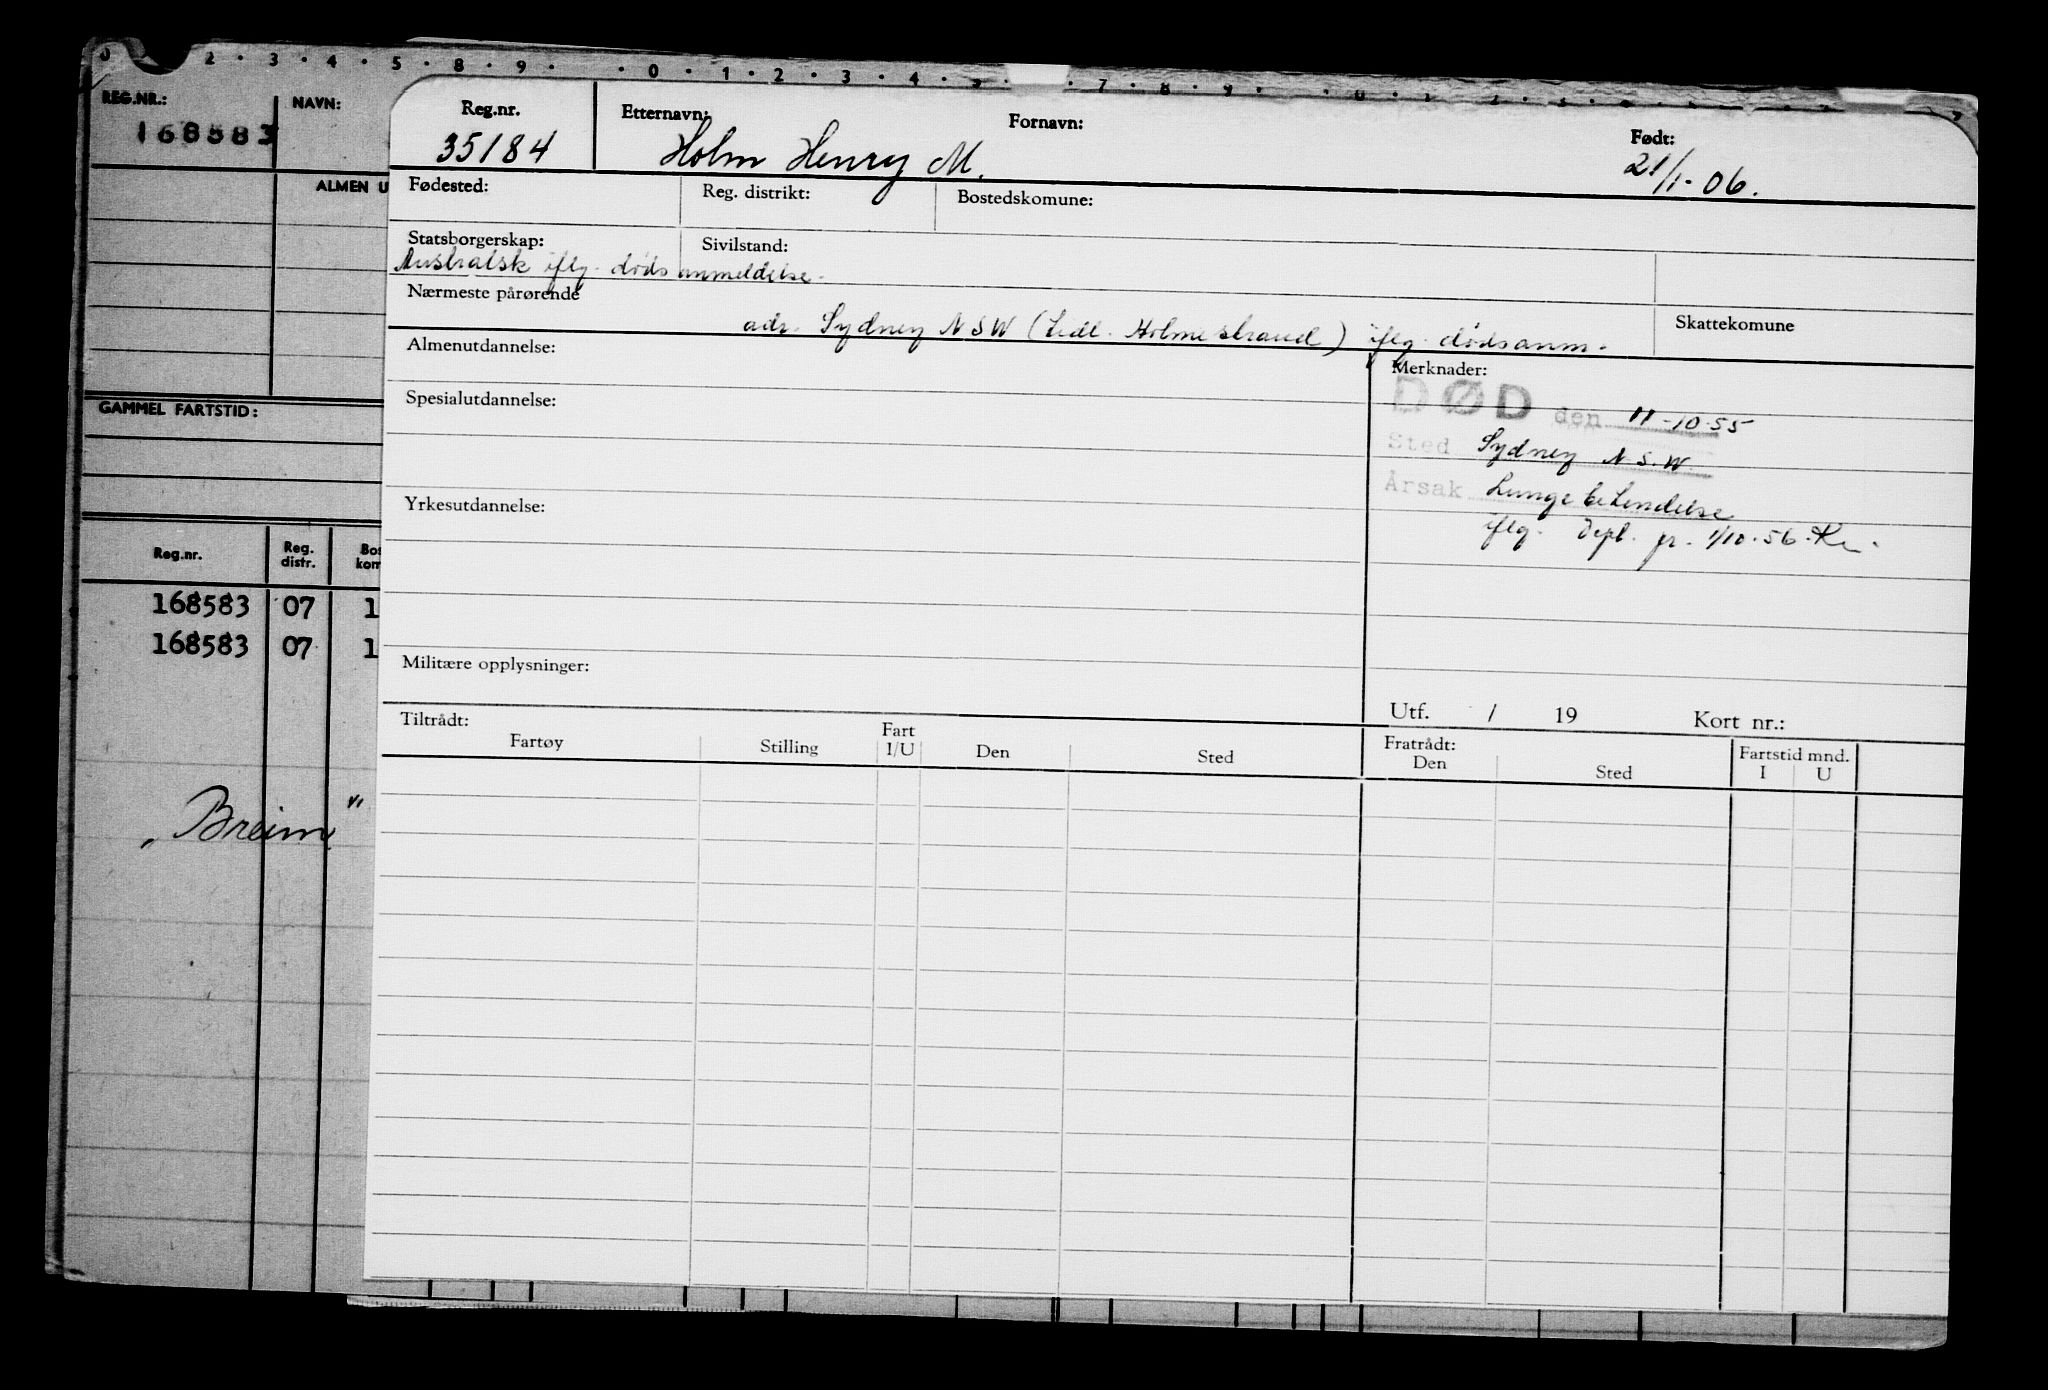 0 2 · 3 · 4 · 5 · 8 · 9 · · 0 · 1 · 2 · 3 · 4 · 5 · · 7 · 8 · 9 ·
REG.NR.: NAVN:
168583
ALMEN U
GAMMEL FARTSTID:
Reg.nr. Reg. distr. Bos kom
168583 07 1
168583 07 1
„Breim"
Reg.nr. Etternavn: Fornavn: Født:
35184 Holm Henry M. 21/1-06.
Fødested: Reg. distrikt: Bostedskomune:
Statsborgerskap: Sivilstand:
Australsk iflg. dødsanmeldelse.
Nærmeste pårørende
adr. Sydney NSW (tidl. Holmestrand) iflg. dødsanm.
Skattekomune
Almenutdannelse: Merknader:
DØD den 11-10-55
Spesialutdannelse:
Sted Sydney N.S.W.
Årsak Lungebetendelse
Yrkesutdannelse:
iflg. Dept. pr. 1/10-56.
Militære opplysninger:
Utf. / 19 Kort nr.:
Tiltrådt: Fratrådt:
Fartøy Stilling Fart I/U Den Sted Den Sted Fartstid mnd. I U